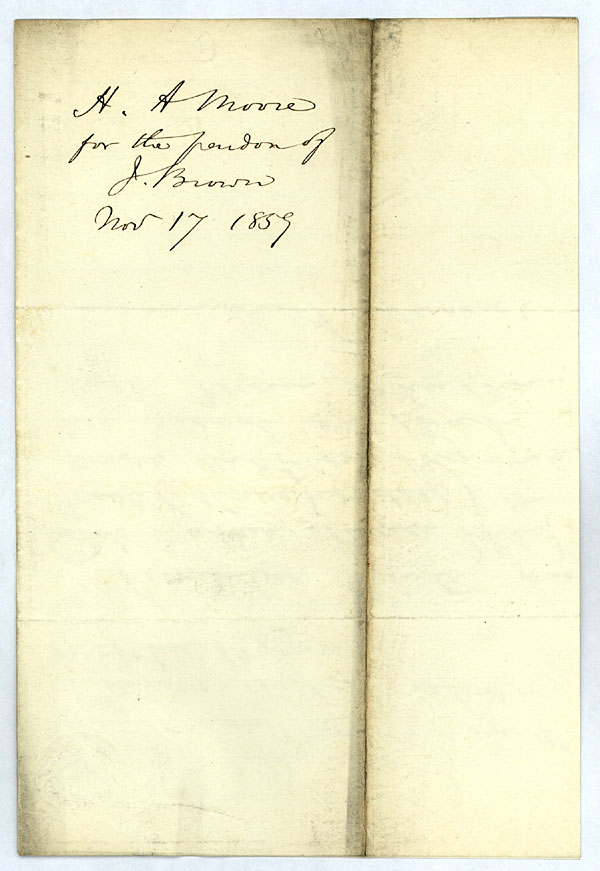 H. A Moore
for the pardon of
J. Brown
Nov 17 1859